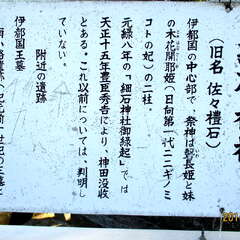 (旧名 佐々禮石)
伊都国の中心部で、祭神は磐長姫と妹
の木花開耶姫(日向第一代ニニギノミ
コトの妃)の二柱。
元緑八年の「細石神社御縁起」では
天正十五年豊臣秀吉により、神田没収
とある。これ以前については、判明し
ていない。
附近の遺跡
伊都国王墓